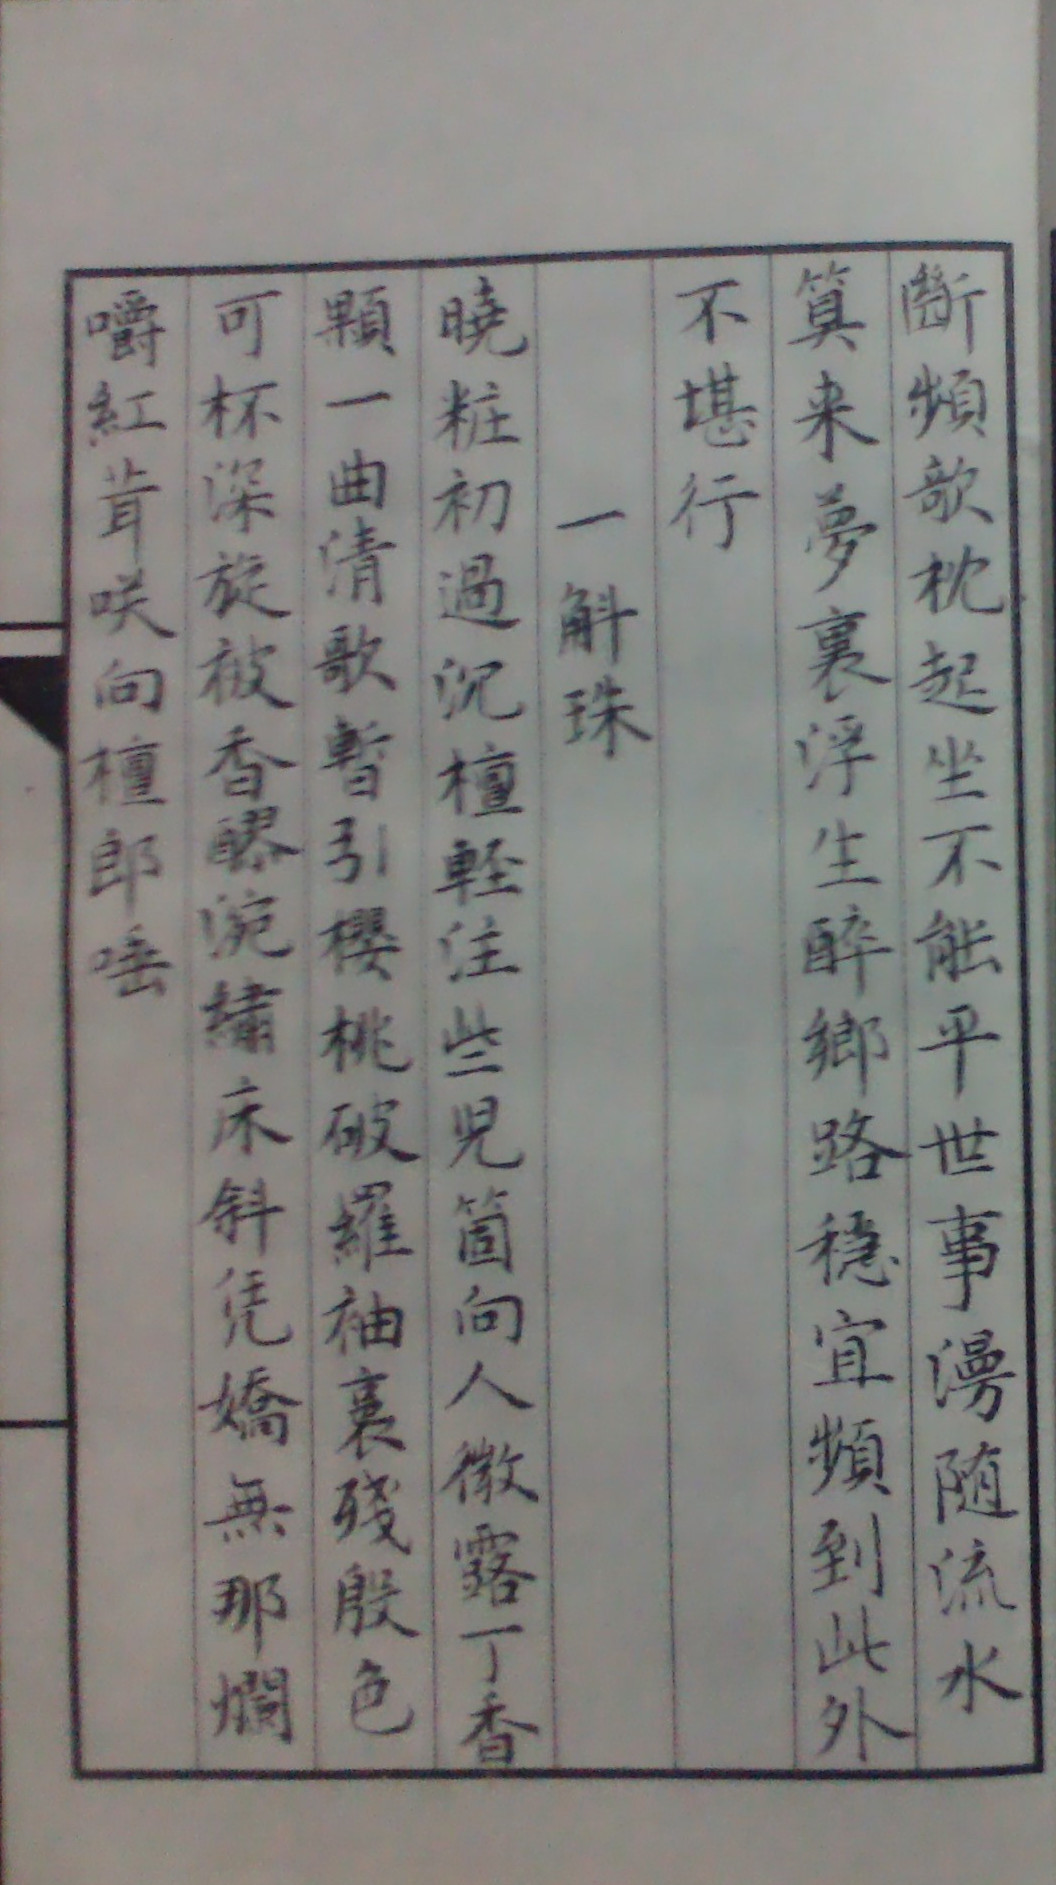 斷頻欹枕起坐不能平世事漫随流水
算来夢裏浮生醉鄉路穏宜頻到此外
不堪行
一斛珠
曉粧初過沉檀軽注些児箇向人微露丁香
顆一曲清歌暫引櫻桃破羅袖裏殘殷色
可杯深旋被香醪涴繡床斜凭嬌無那爛
嚼紅茸咲向檀郎唾